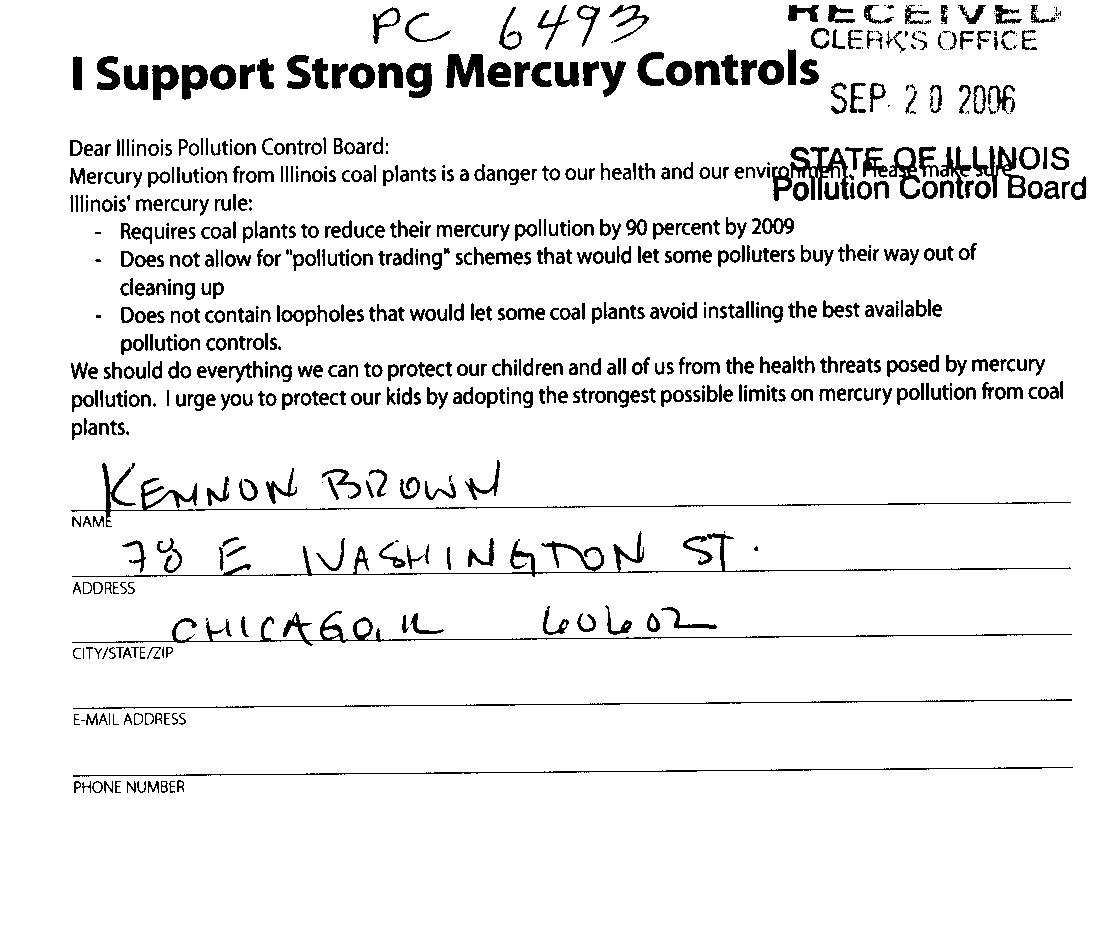 PC 6493
RECEIVED
CLERK'S OFFICE
I Support Strong Mercury Controls
SEP 20 2006
Dear Illinois Pollution Control Board:
STATE OF ILLINOIS
Mercury pollution from Illinois coal plants is a danger to our health and our environment. Please make sure
Pollution Control Board
Illinois' mercury rule:
- Requires coal plants to reduce their mercury pollution by 90 percent by 2009
- Does not allow for "pollution trading" schemes that would let some polluters buy their way out of
cleaning up
- Does not contain loopholes that would let some coal plants avoid installing the best available
pollution controls.
We should do everything we can to protect our children and all of us from the health threats posed by mercury
pollution. I urge you to protect our kids by adopting the strongest possible limits on mercury pollution from coal
plants.
KENNON BROWN
NAME
78 E WASHINGTON ST.
ADDRESS
CHICAGO, IL 60602
CITY/STATE/ZIP
E-MAIL ADDRESS
PHONE NUMBER